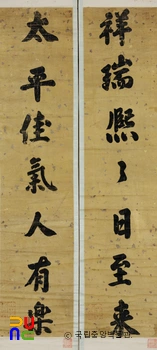 祥瑞熙々日至来
太平佳氣人有樂
© 국립중앙박물관